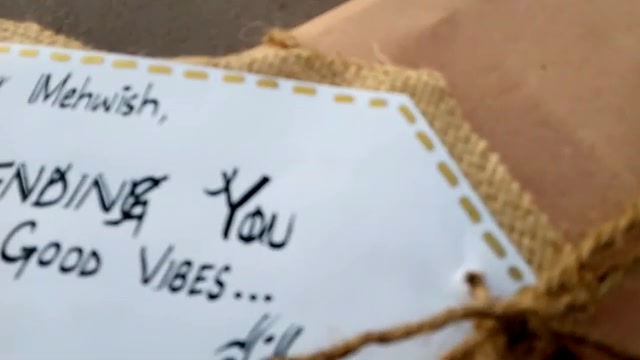 Mehwish,
ENDING YOU
GOOD VIBES...